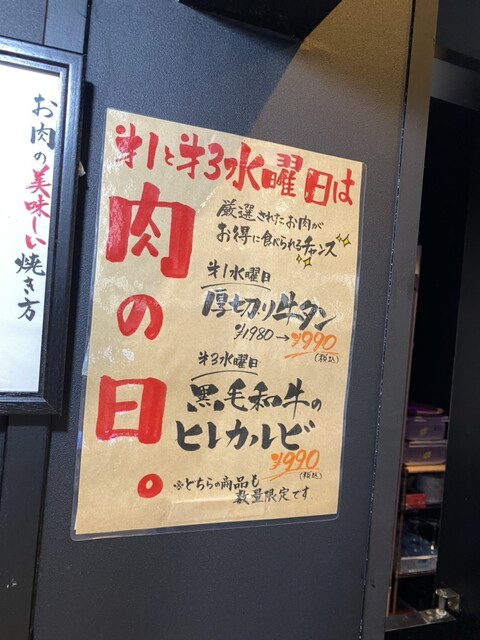 お肉の美味しい焼き方
㐧1と㐧3水曜日は
肉の日。
厳選されたお肉が
お得に食べられるチャンス
㐧1水曜日
厚切り牛タン
¥1980→¥990
(税込)
㐧3水曜日
黒毛和牛の
ヒレカルビ
¥990
(税込)
※どちらの商品も
数量限定です